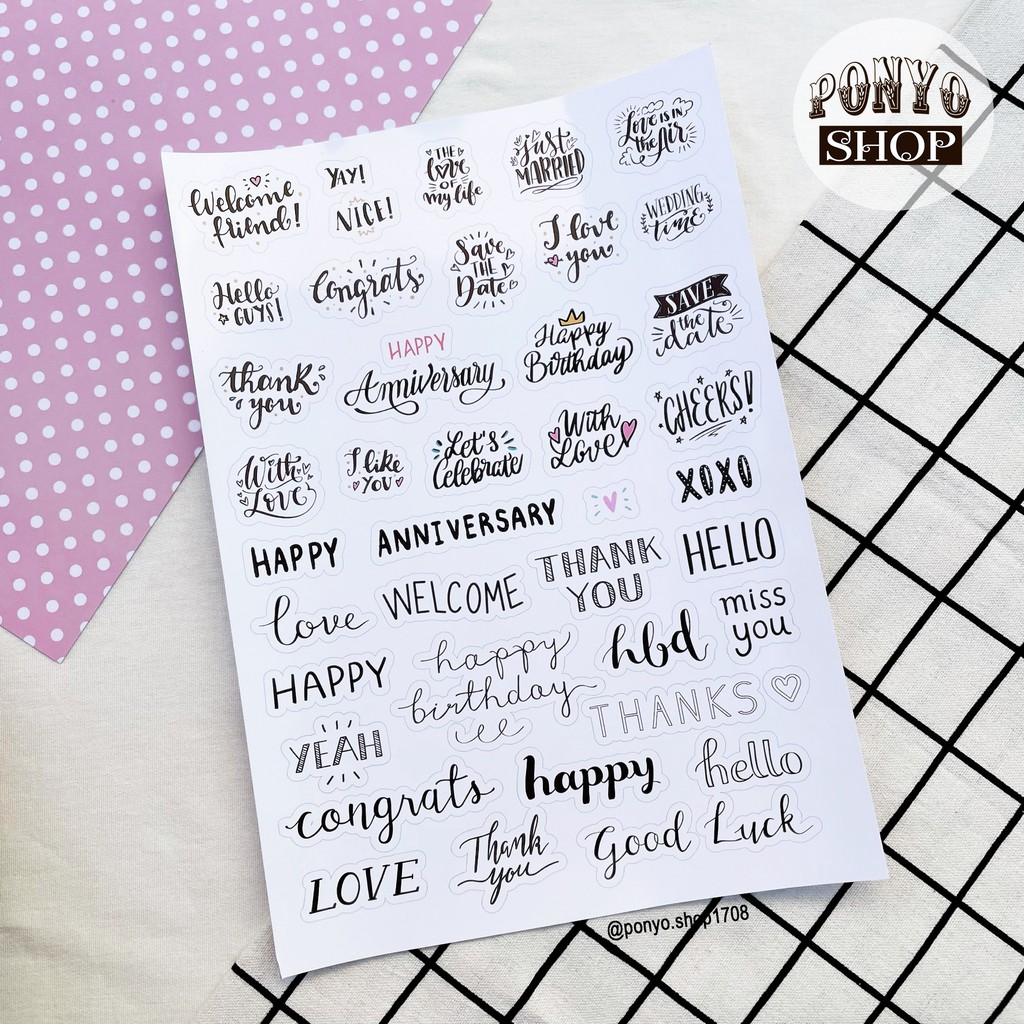 PONYO
SHOP
Welcome
friend!
YAY!
NICE!
THE
love
OF
my life
Just
MARRIED
Love is in
the Air
Hello
GUYS!
Congrats
Save
THE
Date
I love
you
WEDDING
time
thank
you
HAPPY
Anniversary
Happy
Birthday
SAVE
the
date
With
Love
I like
YOU
Let's
Celebrate
With
Love
CHEERS!
HAPPY
ANNIVERSARY
XOXO
love
WELCOME
THANK
YOU
HELLO
HAPPY
happy
birthday
hbd
miss
you
YEAH
THANKS
congrats
happy
hello
LOVE
Thank
you
Good Luck
@ponyo.shop1708